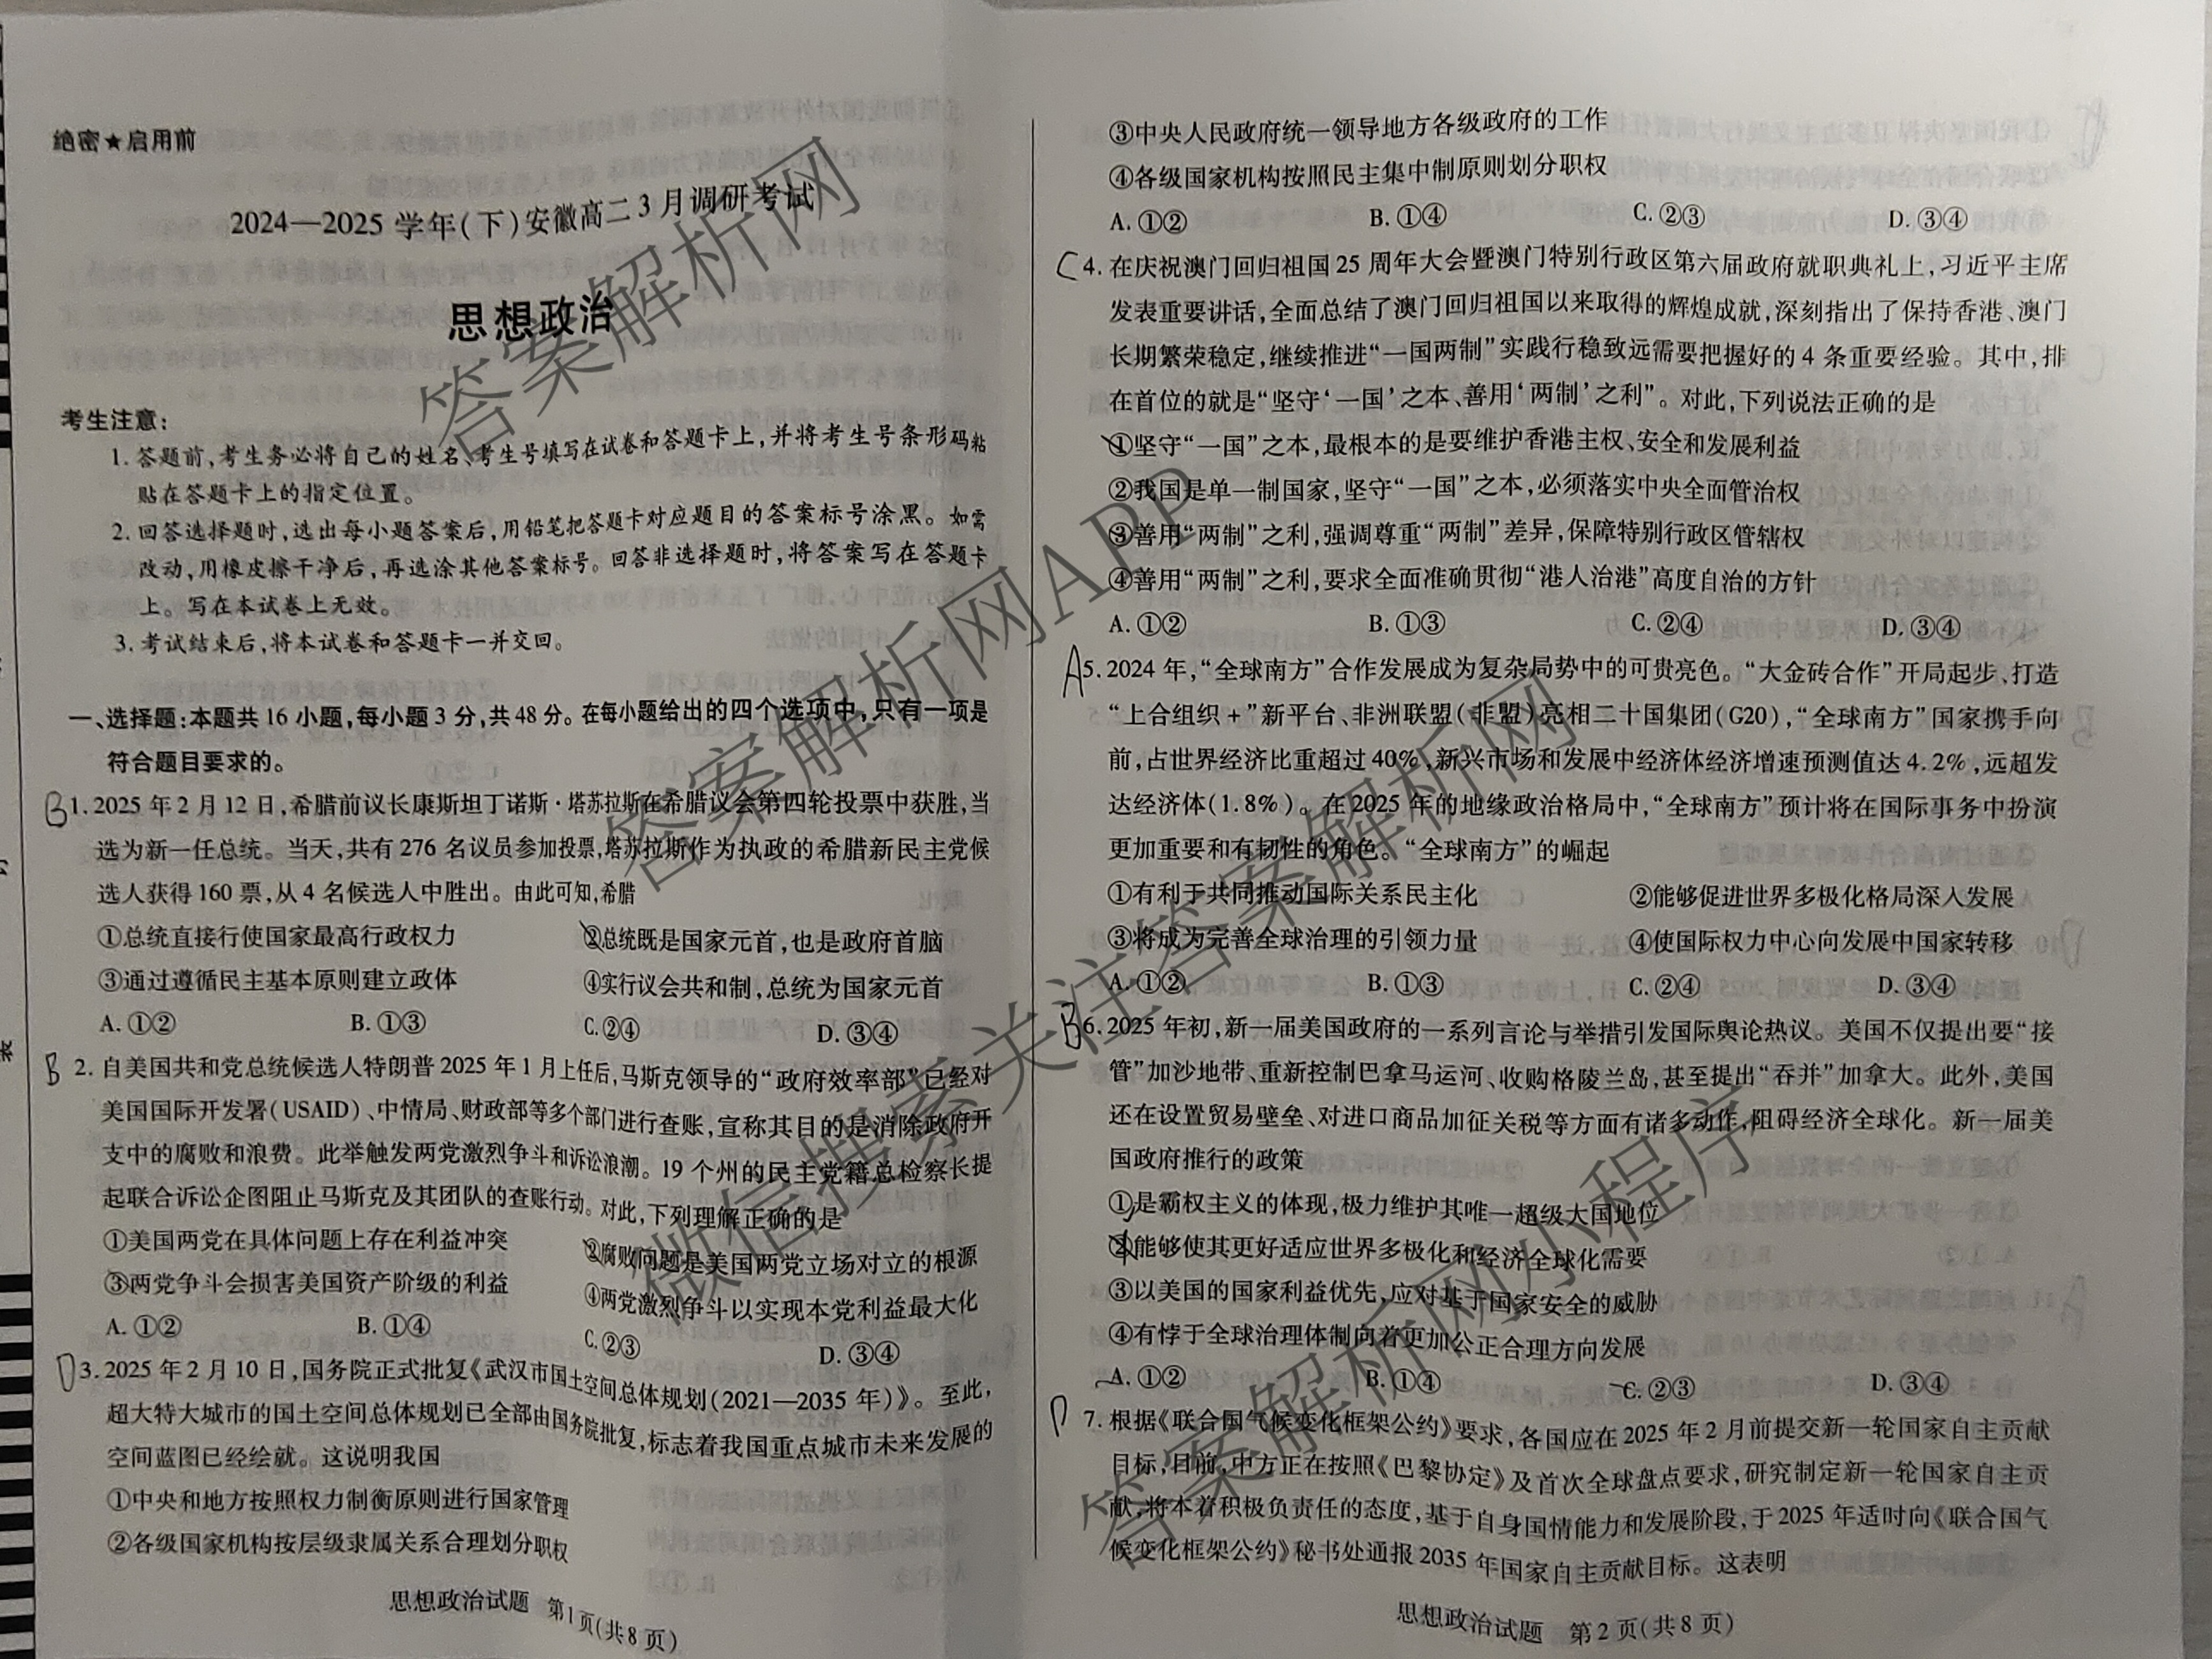 绝密★启用前
2024—2025 学年(下)安徽高二3月调研考试
思想政治
考生注意:
1. 答题前,考生务必将自己的姓名、考生号填写在试卷和答题卡上,并将考生号条形码粘
贴在答题卡上的指定位置。
2. 回答选择题时,选出每小题答案后,用铅笔把答题卡对应题目的答案标号涂黑。如需
改动,用橡皮擦干净后,再选涂其他答案标号。回答非选择题时,将答案写在答题卡
上。写在本试卷上无效。
3. 考试结束后,将本试卷和答题卡一并交回。
一、选择题:本题共16小题,每小题3分,共48分。在每小题给出的四个选项中,只有一项是
符合题目要求的。
B 1. 2025 年 2 月 12 日,希腊前议长康斯坦丁诺斯·塔苏拉斯在希腊议会第四轮投票中获胜,当
选为新一任总统。当天,共有 276 名议员参加投票,塔苏拉斯作为执政的希腊新民主党候
选人获得 160 票,从 4 名候选人中胜出。由此可知,希腊
①总统直接行使国家最高行政权力 ②总统既是国家元首,也是政府首脑
③通过遵循民主基本原则建立政体 ④实行议会共和制,总统为国家元首
A. ①② B. ①③ C. ②④ D. ③④
B 2. 自美国共和党总统候选人特朗普 2025 年 1 月上任后,马斯克领导的“政府效率部”已经对
美国国际开发署(USAID)、中情局、财政部等多个部门进行查账,宣称其目的是消除政府开
支中的腐败和浪费。此举触发两党激烈争斗和诉讼浪潮。19 个州的民主党籍总检察长提
起联合诉讼企图阻止马斯克及其团队的查账行动。对此,下列理解正确的是
①美国两党在具体问题上存在利益冲突 ②腐败问题是美国两党立场对立的根源
③两党争斗会损害美国资产阶级的利益 ④两党激烈争斗以实现本党利益最大化
A. ①② B. ①④ C. ②③ D. ③④
D 3. 2025 年 2 月 10 日,国务院正式批复《武汉市国土空间总体规划(2021—2035 年)》。至此,
超大特大城市的国土空间总体规划已全部由国务院批复,标志着我国重点城市未来发展的
空间蓝图已经绘就。这说明我国
①中央和地方按照权力制衡原则进行国家管理
②各级国家机构按层级隶属关系合理划分职权
思想政治试题 第1页(共8页)
③中央人民政府统一领导地方各级政府的工作
④各级国家机构按照民主集中制原则划分职权
A. ①② B. ①④ C. ②③ D. ③④
C 4. 在庆祝澳门回归祖国 25 周年大会暨澳门特别行政区第六届政府就职典礼上,习近平主席
发表重要讲话,全面总结了澳门回归祖国以来取得的辉煌成就,深刻指出了保持香港、澳门
长期繁荣稳定,继续推进“一国两制”实践行稳致远需要把握好的 4 条重要经验。其中,排
在首位的就是“坚守‘一国’之本、善用‘两制’之利”。对此,下列说法正确的是
①坚守“一国”之本,最根本的是要维护香港主权、安全和发展利益
②我国是单一制国家,坚守“一国”之本,必须落实中央全面管治权
③善用“两制”之利,强调尊重“两制”差异,保障特别行政区管辖权
④善用“两制”之利,要求全面准确贯彻“港人治港”高度自治的方针
A. ①② B. ①③ C. ②④ D. ③④
A 5. 2024 年,“全球南方”合作发展成为复杂局势中的可贵亮色。“大金砖合作”开局起步、打造
“上合组织+”新平台、非洲联盟(非盟)亮相二十国集团(G20),“全球南方”国家携手向
前,占世界经济比重超过 40%,新兴市场和发展中经济体经济增速预测值达 4.2%,远超发
达经济体(1.8%)。在 2025 年的地缘政治格局中,“全球南方”预计将在国际事务中扮演
更加重要和有韧性的角色。“全球南方”的崛起
①有利于共同推动国际关系民主化 ②能够促进世界多极化格局深入发展
③将成为完善全球治理的引领力量 ④使国际权力中心向发展中国家转移
A. ①② B. ①③ C. ②④ D. ③④
B 6. 2025 年初,新一届美国政府的一系列言论与举措引发国际舆论热议。美国不仅提出要“接
管”加沙地带、重新控制巴拿马运河、收购格陵兰岛,甚至提出“吞并”加拿大。此外,美国
还在设置贸易壁垒、对进口商品加征关税等方面有诸多动作,阻碍经济全球化。新一届美
国政府推行的政策
①是霸权主义的体现,极力维护其唯一超级大国地位
②能够使其更好适应世界多极化和经济全球化需要
③以美国的国家利益优先,应对基于国家安全的威胁
④有悖于全球治理体制向着更加公正合理方向发展
A. ①② B. ①④ C. ②③ D. ③④
D 7. 根据《联合国气候变化框架公约》要求,各国应在 2025 年 2 月前提交新一轮国家自主贡献
目标,目前,中方正在按照《巴黎协定》及首次全球盘点要求,研究制定新一轮国家自主贡
献,将本着积极负责任的态度,基于自身国情能力和发展阶段,于 2025 年适时向《联合国气
候变化框架公约》秘书处通报 2035 年国家自主贡献目标。这表明
思想政治试题 第2页(共8页)
答案解析网
答案解析网APP
微信搜索关注答案解析网
答案解析网小程序